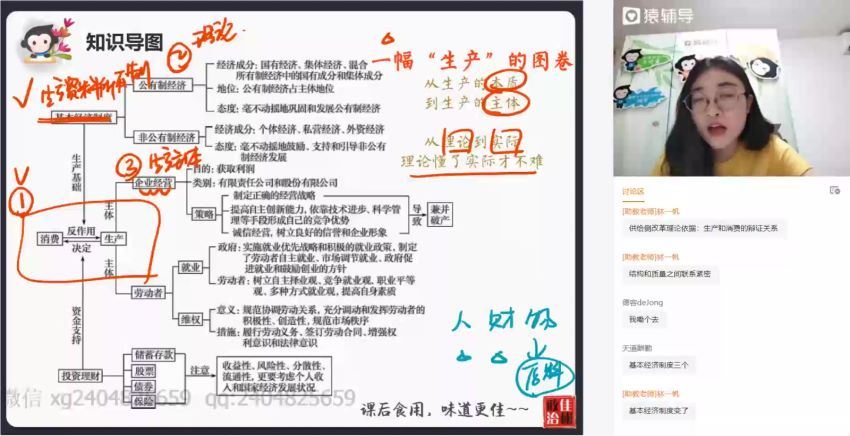 知识导图
一幅“生产”的图卷
从生产的本质
到生产的主体
从理论到实际
理论懂了实际才不难
生产资料所有制
②
基本经济制度
公有制经济
经济成分：国有经济、集体经济、混合
所有制经济中的国有成分和集体成分
地位：公有制经济占主体地位
态度：毫不动摇地巩固和发展公有制经济
非公有制经济
经济成分：个体经济、私营经济、外资经济
态度：毫不动摇地鼓励、支持和引导非公有
制经济发展
生产基础
③
企业经营
目的：获取利润
类别：有限责任公司和股份有限公司
策略
制定正确的经营战略
提高自主创新能力，依靠技术进步、科学管
理等手段形成自己的竞争优势
诚信经营，树立良好的信誉和企业形象
导致
兼并
破产
主体
①
消费
反作用
决定
生产
主体
劳动者
就业
政府：实施就业优先战略和积极的就业政策，制定
了劳动者自主就业、市场调节就业、政府促
进就业和鼓励创业的方针
劳动者：树立自主择业观、竞争就业观、职业平等
观、多种方式就业观，提高自身素质
维权
意义：规范协调劳动关系，充分调动和发挥劳动者的
积极性、创造性，规范市场秩序
措施：履行劳动义务、签订劳动合同、增强权
利意识和法律意识
资金支持
投资理财
储蓄存款
股票
债券
保险
注意
收益性、风险性、分散性、
流通性，更要考虑个人收
入和国家经济发展状况
人 财 物
微信 xg2404825659 qq:2404825659
课后食用，味道更佳~~
猿辅导
讨论区
[助教老师]林一帆
供给侧改革理论依据：生产和消费的辩证关系
[助教老师]林一帆
结构和质量之间联系紧密
德容deJong
我嘞个去
天道酬勤
基本经济制度三个
[助教老师]林一帆
基本经济制度变了